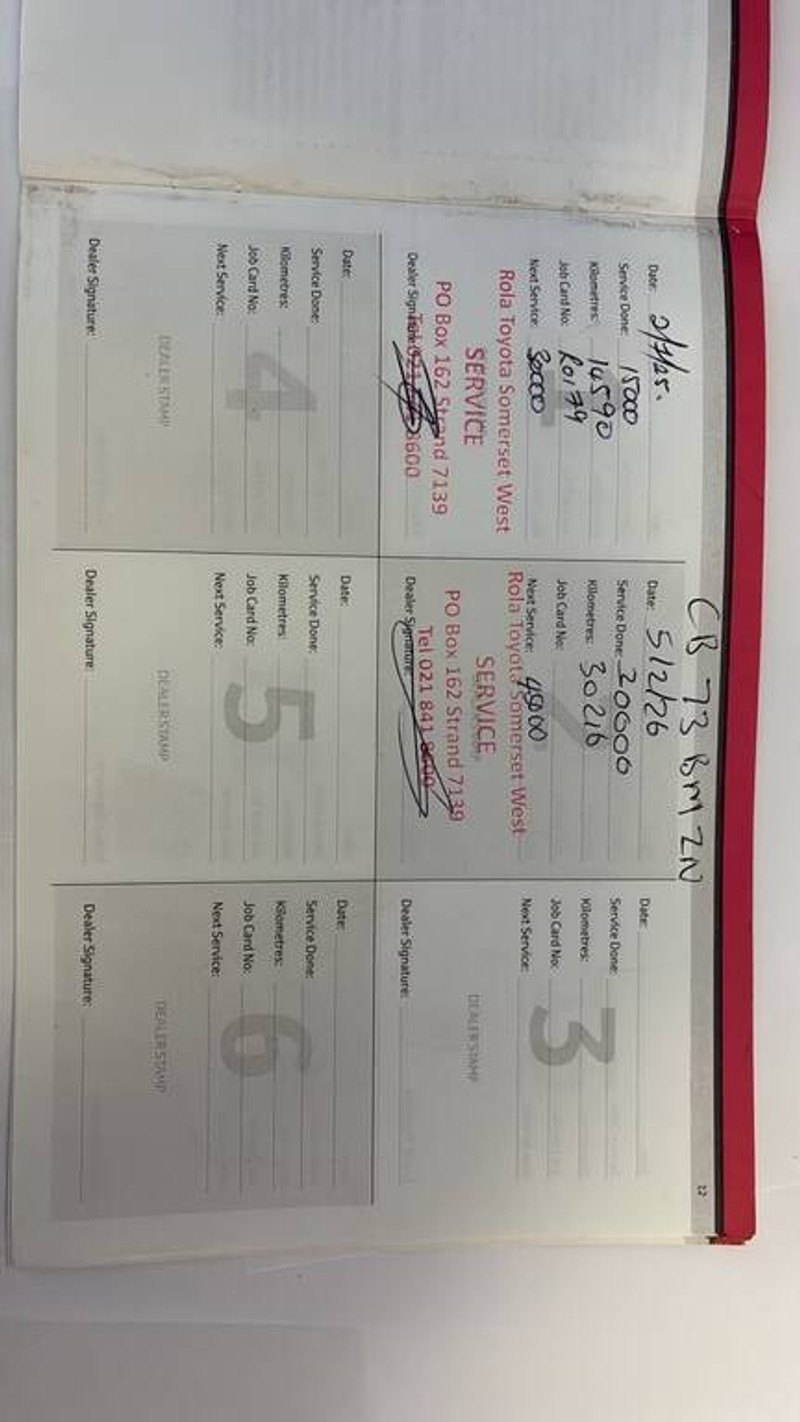 CB 73 BM ZN
Date: 2/7/25.
Service Done: 15000
Kilometres: 14590
Job Card No: R0179
Next Service: 30000
Rola Toyota Somerset West
SERVICE
PO Box 162 Strand 7139
Dealer Signature:
Tel 021 8600
Date: 5/2/26
Service Done: 30000
Kilometres: 30216
Job Card No:
Next Service: 45000
Rola Toyota Somerset West
SERVICE
PO Box 162 Strand 7139
Tel 021 841 8600
Dealer Signature:
3
Date:
Service Done:
Kilometres:
Job Card No:
Next Service:
DEALER STAMP
Dealer Signature:
4
Date:
Service Done:
Kilometres:
Job Card No:
Next Service:
DEALER STAMP
Dealer Signature:
5
Date:
Service Done:
Kilometres:
Job Card No:
Next Service:
DEALER STAMP
Dealer Signature:
6
Date:
Service Done:
Kilometres:
Job Card No:
Next Service:
DEALER STAMP
Dealer Signature: